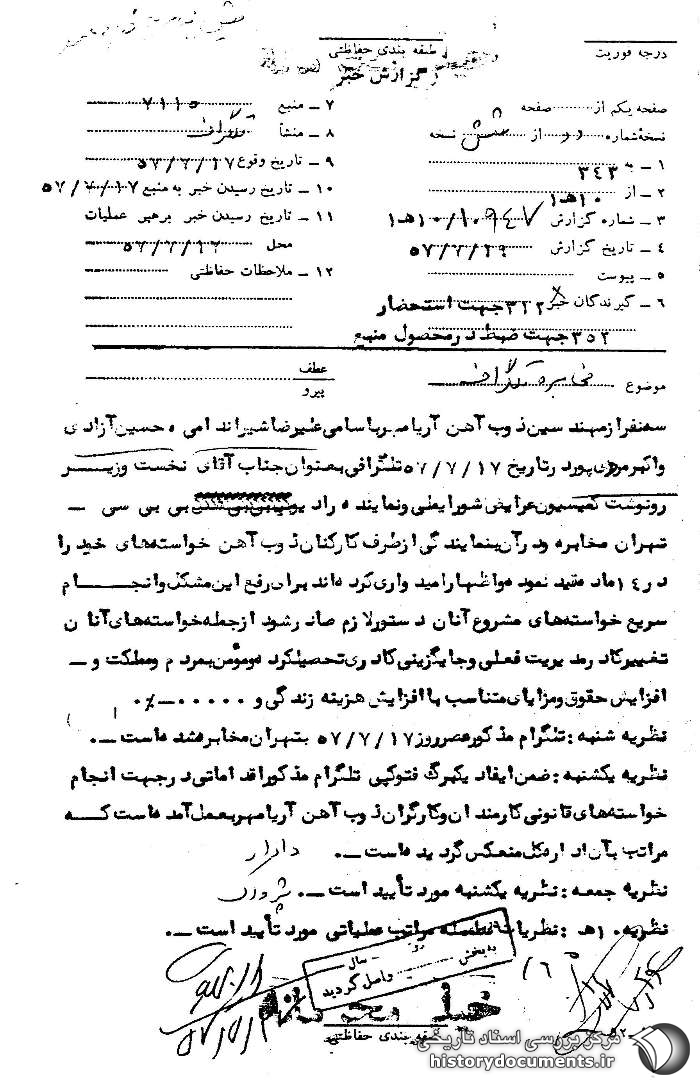 درجه فوریت
طبقه بندی حفاظتی
گزارش خبر
صفحه یکم از صفحه
نسخه شماره دو از شش نسخه
۱ ـ به ۳۴۳
۲ ـ از ۱۰هـ۱
۳ ـ شماره گزارش ۱۰۹۴۷/۱۰هـ۱
۴ ـ تاریخ گزارش ۵۷/۷/۲۹
۵ ـ پیوست
۶ ـ گیرندگان خبر ۳۲۲ جهت استحضار
۳۵۲ جهت ضبط در محصول منبع
۷ ـ منبع ۷۱۱۵
۸ ـ منشأ تلگراف
۹ ـ تاریخ وقوع ۵۷/۷/۱۷
۱۰ ـ تاریخ رسیدن خبر به منبع ۵۷/۷/۱۷
۱۱ ـ تاریخ رسیدن خبر برهبر عملیات
محل
۱۲ ـ ملاحظات حفاظتی
موضوع مخابره تلگراف
عطف
پیرو
سه نفر از مهندسین ذوب آهن آریامهر باسامی علیرضا شیراندامی ، حسین آزادی
و اکبر در تاریخ ۵۷/۷/۱۷ تلگرافی بعنوان جناب آقای نخست وزیر
رونوشت کمیسیون عرایض شورایملی و نماینده رادیو بی بی سی ـ
تهران مخابره و در آن بنمایندگی از طرف کارکنان ذوب آهن خواسته‌های خود را
در ۱۴ ماده قید نموده و اظهار امیدواری کرده‌اند برای رفع این مشکل و انجام
سریع خواسته‌های مشروع آنان دستور لازم صادر شود از جمله خواسته‌های آنان
تغییر کادر مدیریت فعلی و جایگزینی کادری تحصیلکرده و مؤمن بمردم و مملکت و ـ
افزایش حقوق و مزایای متناسب با افزایش هزینه زندگی و
نظریه شنبه : تلگرام مذکور عصر روز ۵۷/۷/۱۷ بتهران مخابره شده است ـ.
نظریه یکشنبه : ضمن ایفاد یکبرگ فتوکپی تلگرام مذکور اقداماتی در جهت انجام
خواسته‌های قانونی کارمندان و کارگران ذوب آهن آریامهر بعمل آمده است که
مراتب بآن اداره کل منعکس گردیده است ـ.
نظریه جمعه : نظریه یکشنبه مورد تأیید است ـ.
نظریه ۱۰هـ : نظریات سلسله مراتب عملیاتی مورد تأیید است ـ.
به بخش
سال
واصل گردید
خیلی محرمانه
طبقه بندی حفاظتی
مرکز بررسی اسناد تاریخی
historydocuments.ir